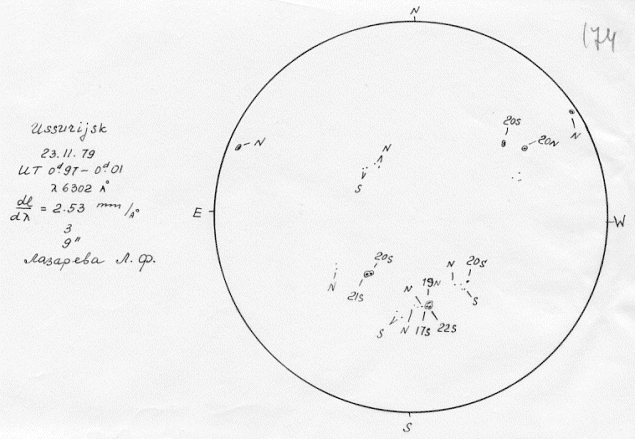 174
N
Ussurijsk
23.11.79
UT 0ᵈ.97 – 0ᵈ.01
λ 6302 Å
dl/dλ = 2.53 mm/Å
3
9"
Лазарева Л. Ф.
20S
20N
N
N
N
S
E
W
20S
21S
N
N
20S
S
N
19N
S
N
17S
22S
S